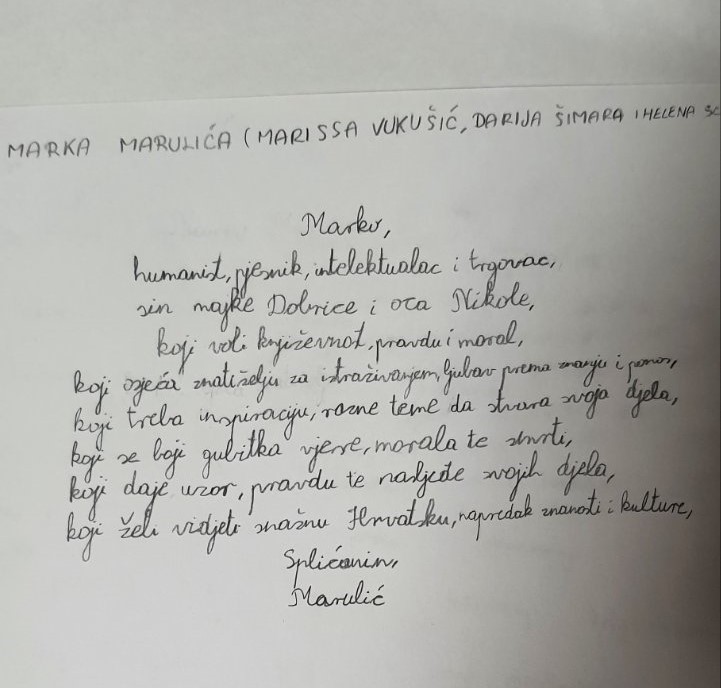 MARKA MARULIĆA (MARISSA VUKUŠIĆ, DARIJA ŠIMARA I HELENA
Marko,
humanist, pjesnik, intelektualac i trgovac,
sin majke Dobrice i oca Nikole,
koji voli književnost, pravdu i moral,
koji osjeća znatiželju za istraživanjem, ljubav prema znanju i ponos,
koji treba inspiraciju, razne teme da stvara svoja djela,
koji se boji gubitka vjere, morala te smrti,
koji daje uzor, pravdu te nasljeđe svojih djela,
koji želi vidjeti snažnu Hrvatsku, napredak znanosti i kulture,
Splićanin,
Marulić